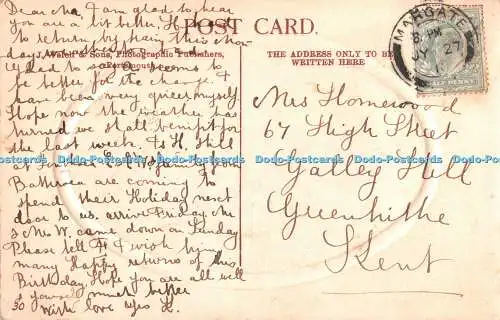 Dear Ma, I am glad to hear
you are a bit better. H
POST CARD.
to return by train this
days,
Welch & Sons, Photographic Publishers,
Portsmouth
THE ADDRESS ONLY TO BE
WRITTEN HERE
MARGATE
8 PM
JY 27
glad to say seems to
be better for the change. I
have been very queer myself
Hope now the weather has
turned we shall benifit for
the last week. Is H. still
at family from
Battersea are coming to
spend their Holiday next
door to us, arrive Friday. Mr
& Mrs W. came down on Sunday
Please tell I wish him
many Happy returns of his
Birthday. Hope you are all well
& yourself much better
30 With love
Mrs Homewood
67 High Street
Galley Hill
Greenhithe
Kent
Dodo-Postcards Dodo-Postcards Dodo-Postcards Dodo-Postcards Dodo-Postcards